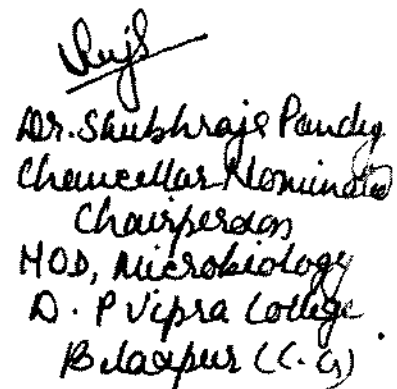 Dr. Shubhraja Pandey
Chancellar Nominated
Chairperson
HOD, Microbiology
D. P Vipra College
Bilaspur (C.G)